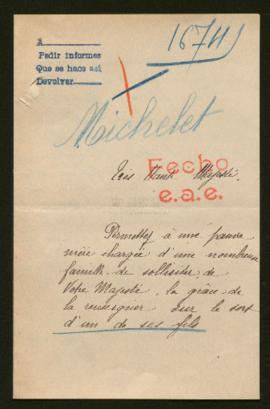 á
Pedir informes
Que se hace así
Devolver
16741
Michelet
Très Haute Majesté.
Fecho
e.a.e.
Permettez à une pauvre
mère chargée d'une nombreuse
famille de solliciter de
Votre Majesté, la grâce de
la renseigner sur le sort
d'un de ses fils